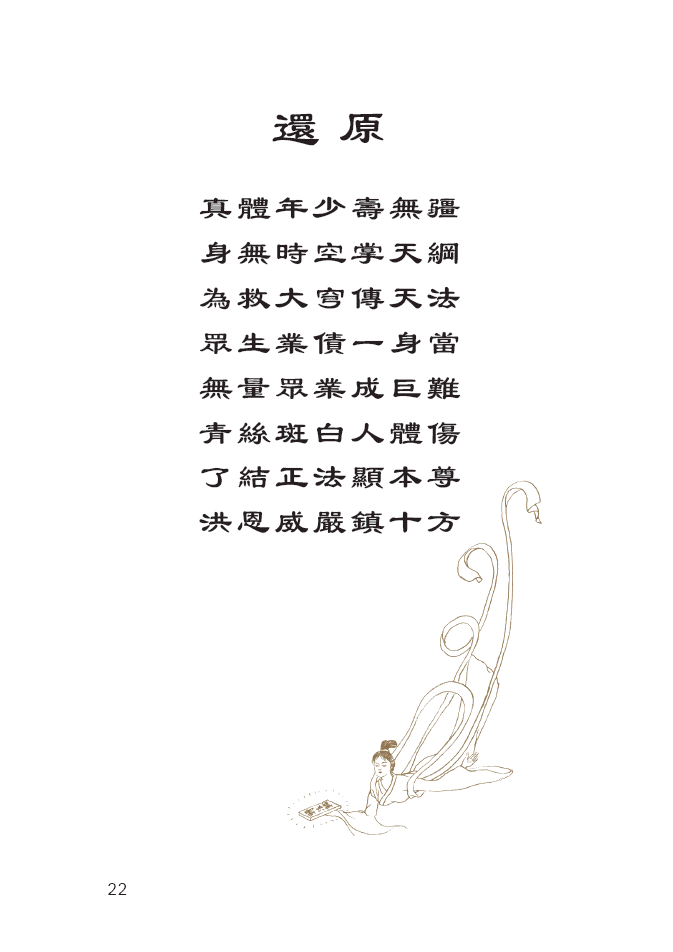 還原
真體年少壽無疆
身無時空掌天綱
為救大穹傳天法
眾生業債一身當
無量眾業成巨難
青絲斑白人體傷
了結正法顯本尊
洪恩威嚴鎮十方
22